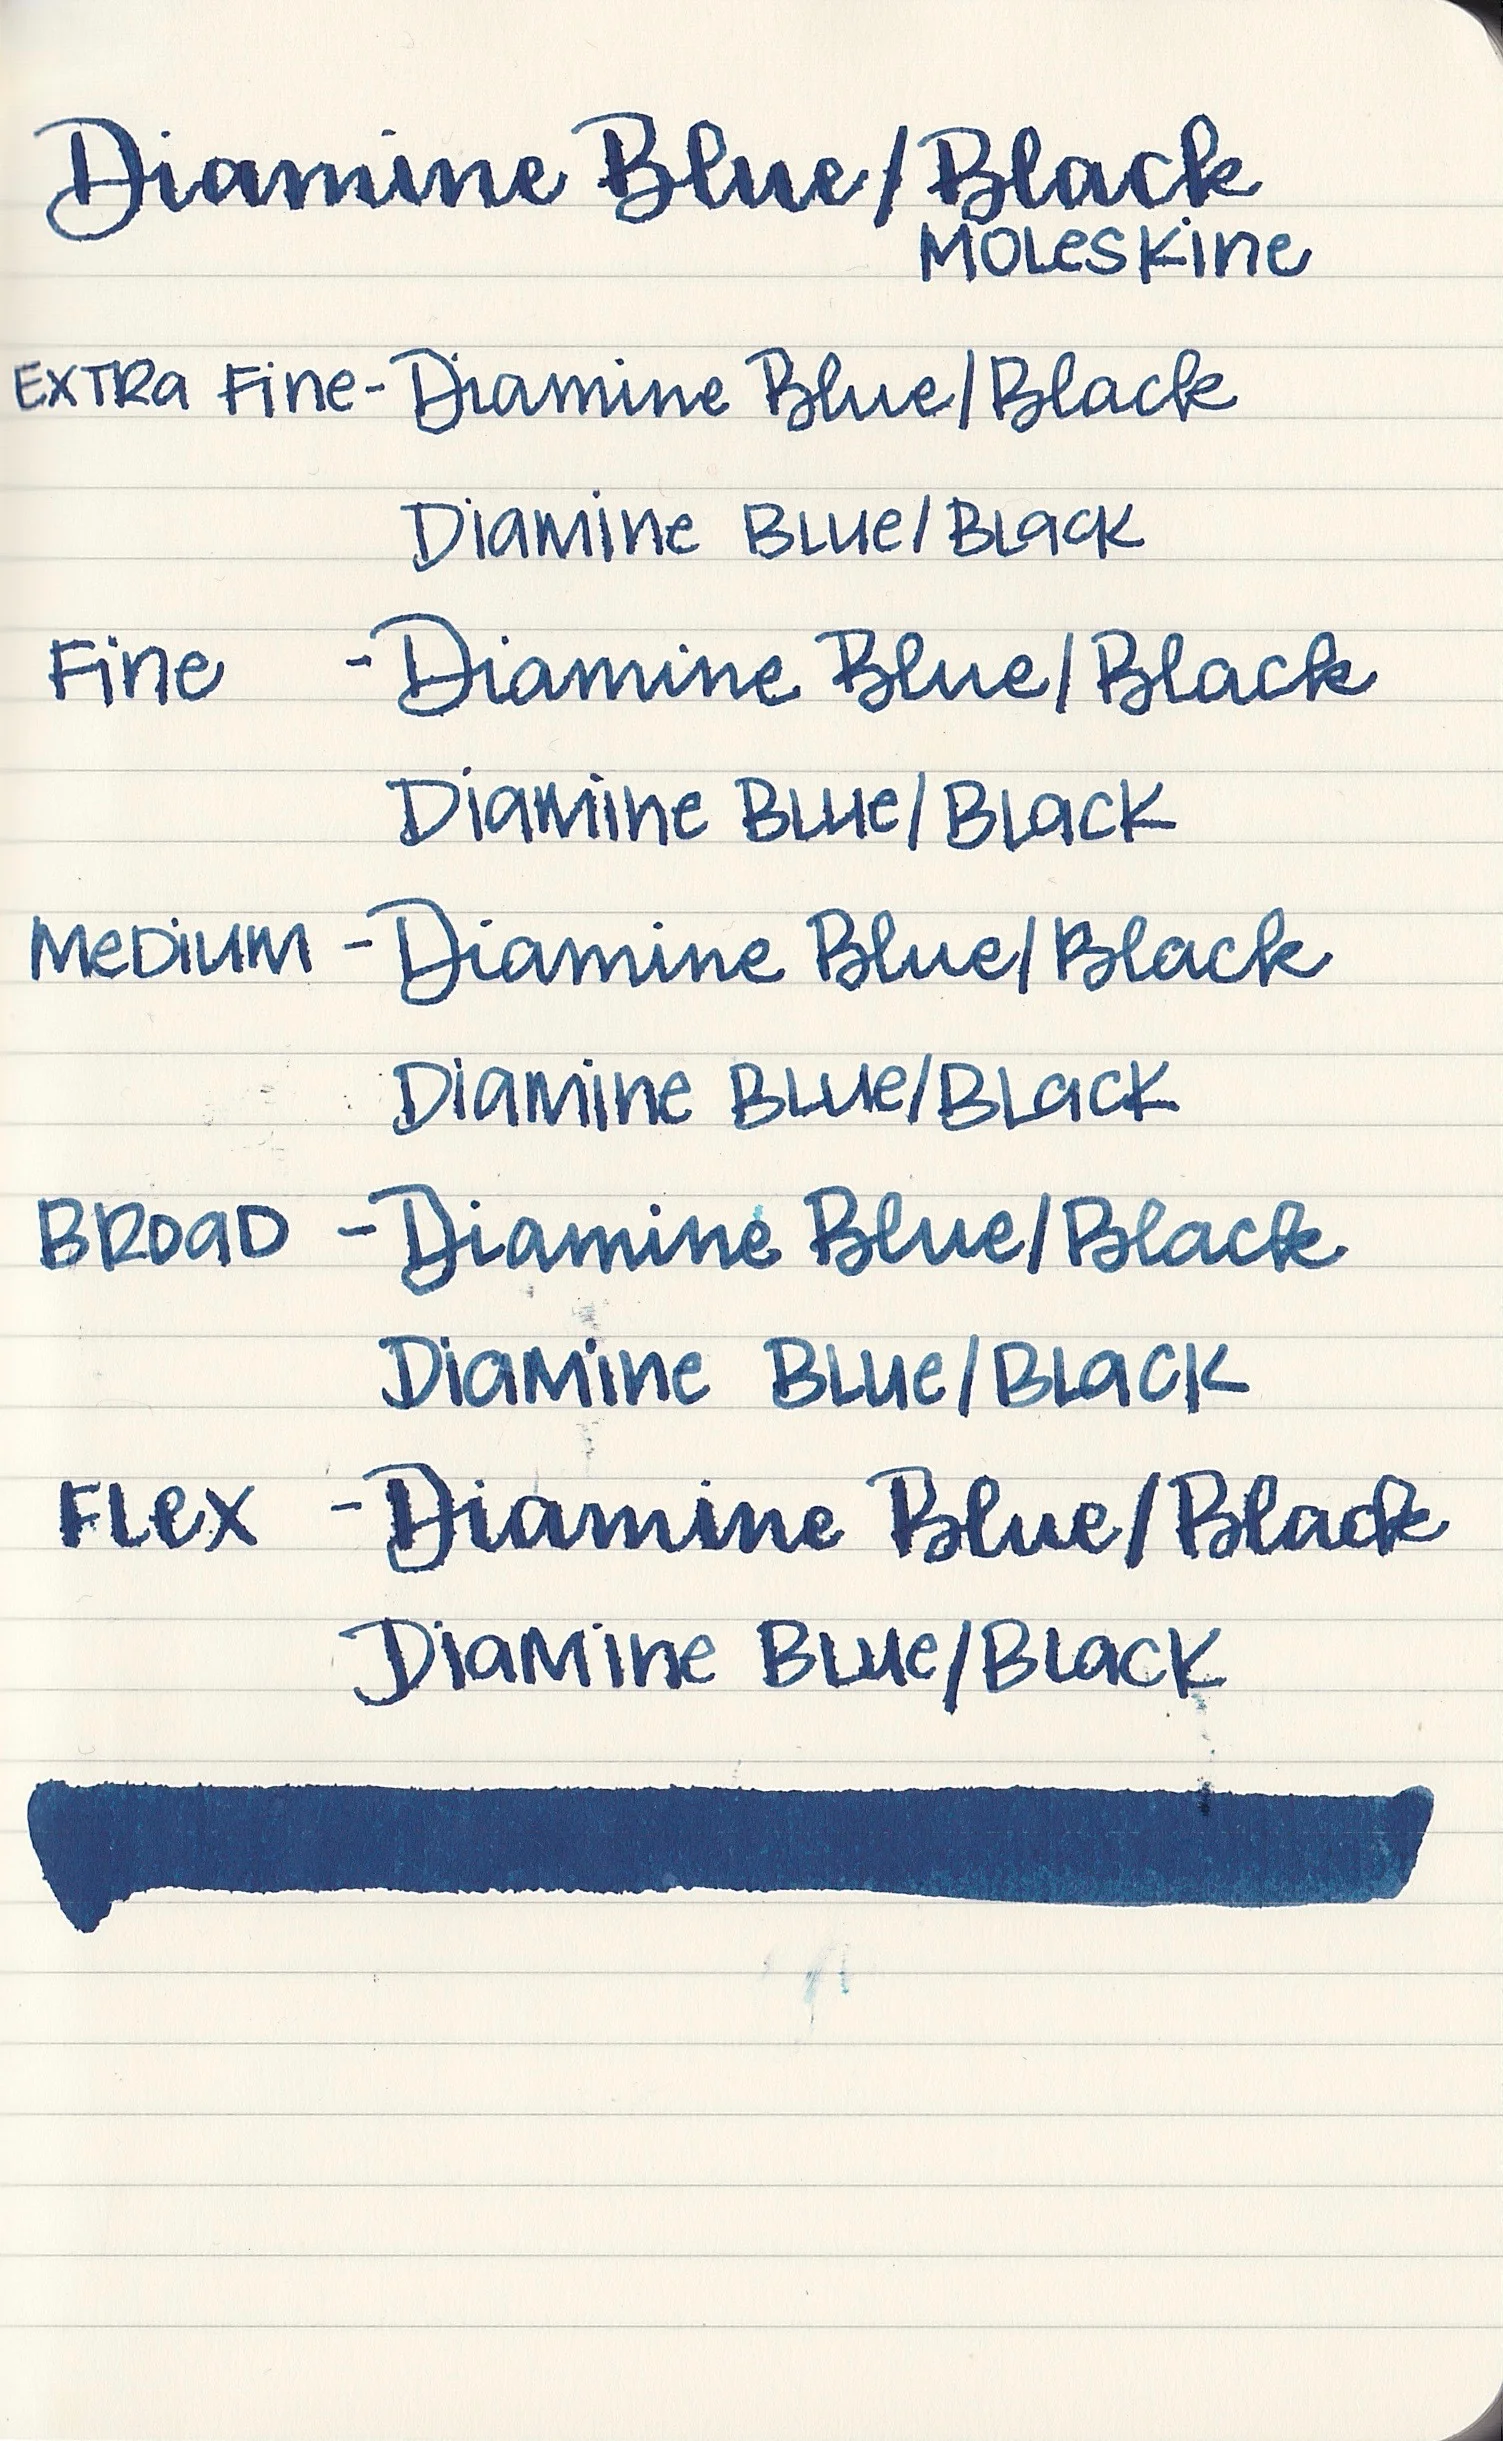 Diamine Blue/Black
Moleskine
Extra Fine - Diamine Blue/Black
Diamine Blue/Black
Fine - Diamine Blue/Black
Diamine Blue/Black
Medium - Diamine Blue/Black
Diamine Blue/Black
Broad - Diamine Blue/Black
Diamine Blue/Black
Flex - Diamine Blue/Black
Diamine Blue/Black